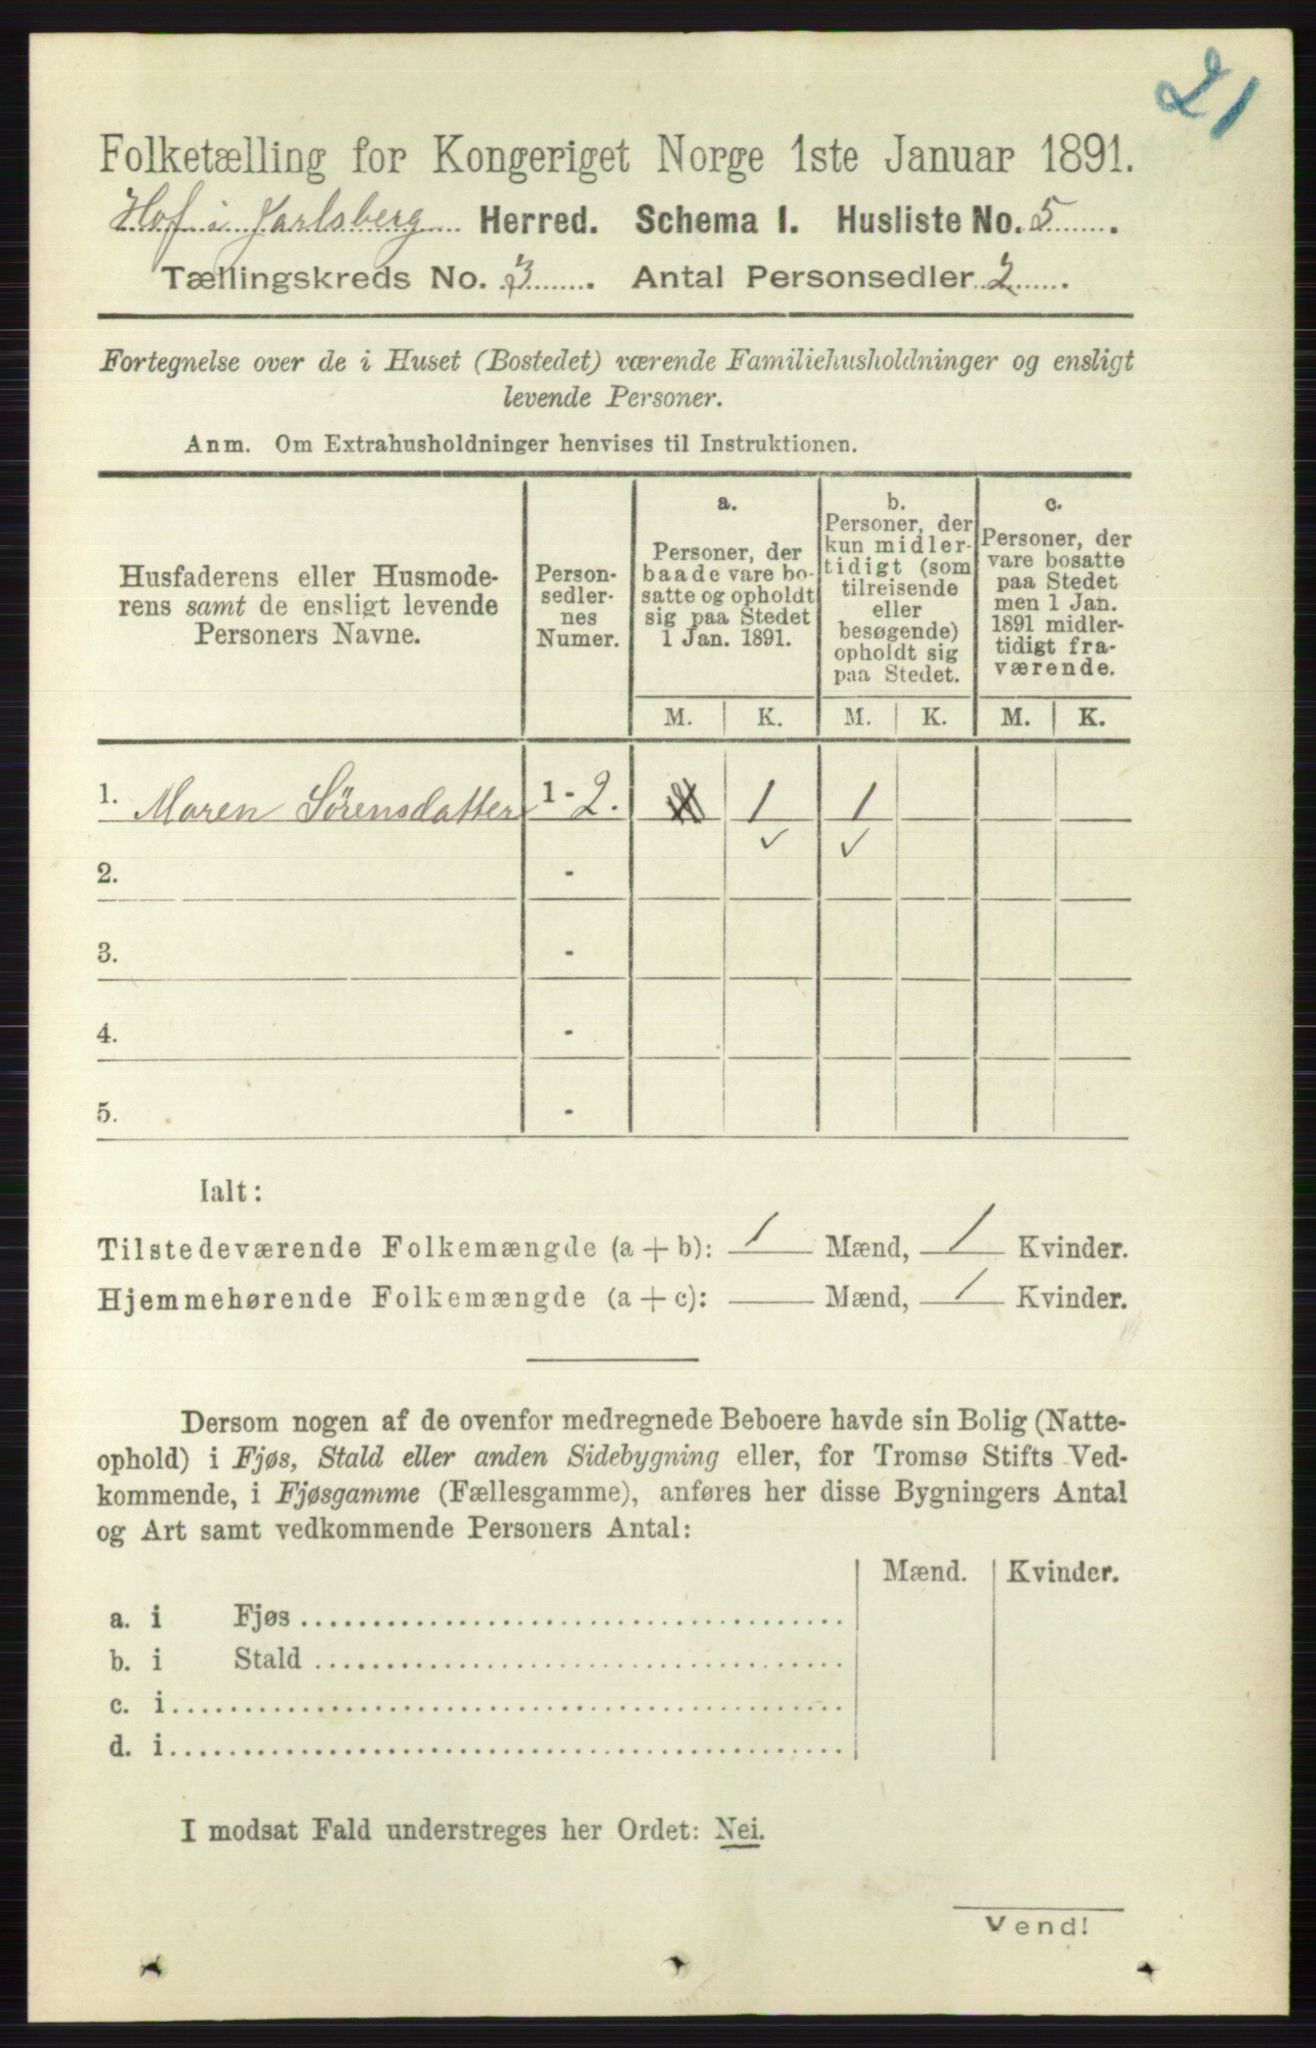 21
Folketælling for Kongeriget Norge 1ste Januar 1891.
Hof i Jarlsberg Herred. Schema I. Husliste No. 5.
Tællingskreds No. 3. Antal Personsedler 2.
Fortegnelse over de i Huset (Bostedet) værende Familiehusholdninger og ensligt
levende Personer.
Anm. Om Extrahusholdninger henvises til Instruktionen.
Husfaderens eller Husmode-
rens samt de ensligt levende
Personers Navne.
Person-
sedler-
nes
Numer.
a.
Personer, der
baade vare bo-
satte og opholdt
sig paa Stedet
1 Jan. 1891.
b.
Personer, der
kun midler-
tidigt (som
tilreisende
eller
besøgende)
opholdt sig
paa Stedet.
c.
Personer, der
vare bosatte
paa Stedet
men 1 Jan.
1891 midler-
tidigt fra-
værende.
M. K. M. K. M. K.
1. Maren Sörensdatter 1 - 2. 1 1
✓ ✓
2. -
3. -
4. -
5. -
Ialt:
Tilstedeværende Folkemængde (a + b): 1 Mænd, 1 Kvinder.
Hjemmehørende Folkemængde (a + c): Mænd, 1 Kvinder.
Dersom nogen af de ovenfor medregnede Beboere havde sin Bolig (Natte-
ophold) i Fjøs, Stald eller anden Sidebygning eller, for Tromsø Stifts Ved-
kommende, i Fjøsgamme (Fællesgamme), anføres her disse Bygningers Antal
og Art samt vedkommende Personers Antal:
Mænd. Kvinder.
a. i Fjøs
b. i Stald
c. i
d. i
I modsat Fald understreges her Ordet: Nei.
Vend!